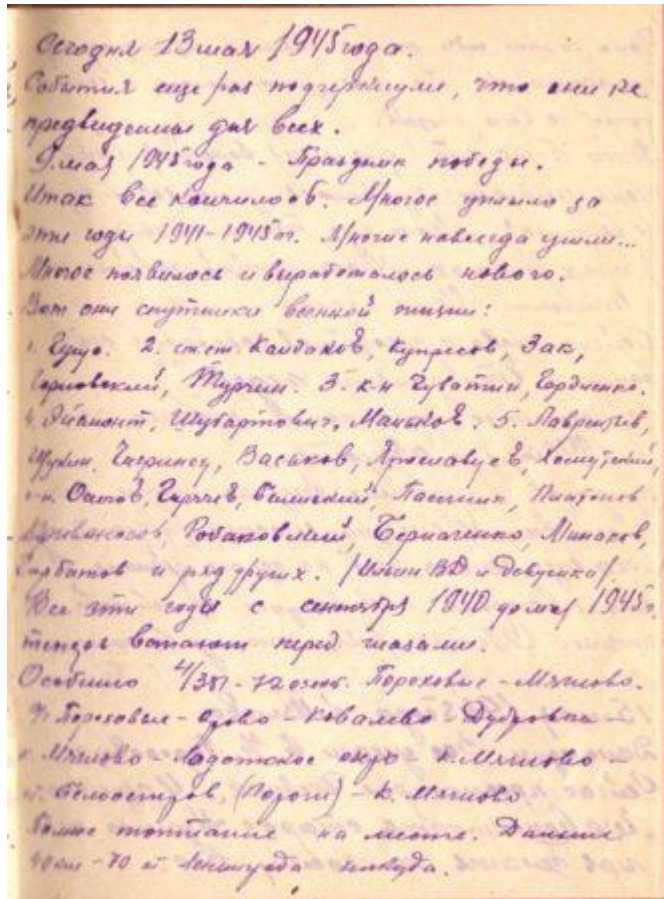 Сегодня 13 мая 1945 года.
События еще раз подчеркнули, что они не
предвиденны для всех.
9 мая 1945 года - Праздник победы.
Итак все кончилось. Многое ушло за
эти годы 1941-1945 гг. Многие навсегда ушли...
Многое появилось и выработалось нового.
Вот они спутники военной жизни:
2. ст. лт. Кандаков, Купресов, Зак,
Турчин. 3. к-н Чуваткин, Гордиенко.
Эйсмонт, Шубартович, Маньков. 5. Лаврентьев,
Щукин, Васьков, Ярославцев, Хомутский,
Осипов, Горячев, Пасечник, Платонов
Кривоносов, Робаковский, Минаков,
Горбатов и ряд других. /Ильин ВД и Девушки/.
Все эти годы с сентября 1940 до мая 1945 г.
теперь встают перед глазами.
Особенно Пороховые - Мяглово.
Пороховые - Озово - Ковалево Дубровка -
Мяглово Ладожское озеро к. Мяглово -
Белоостров, (Пороги) - к. Мяглово
Полное топтание на месте. Дальше
40 км - 70 от Ленинграда никуда.